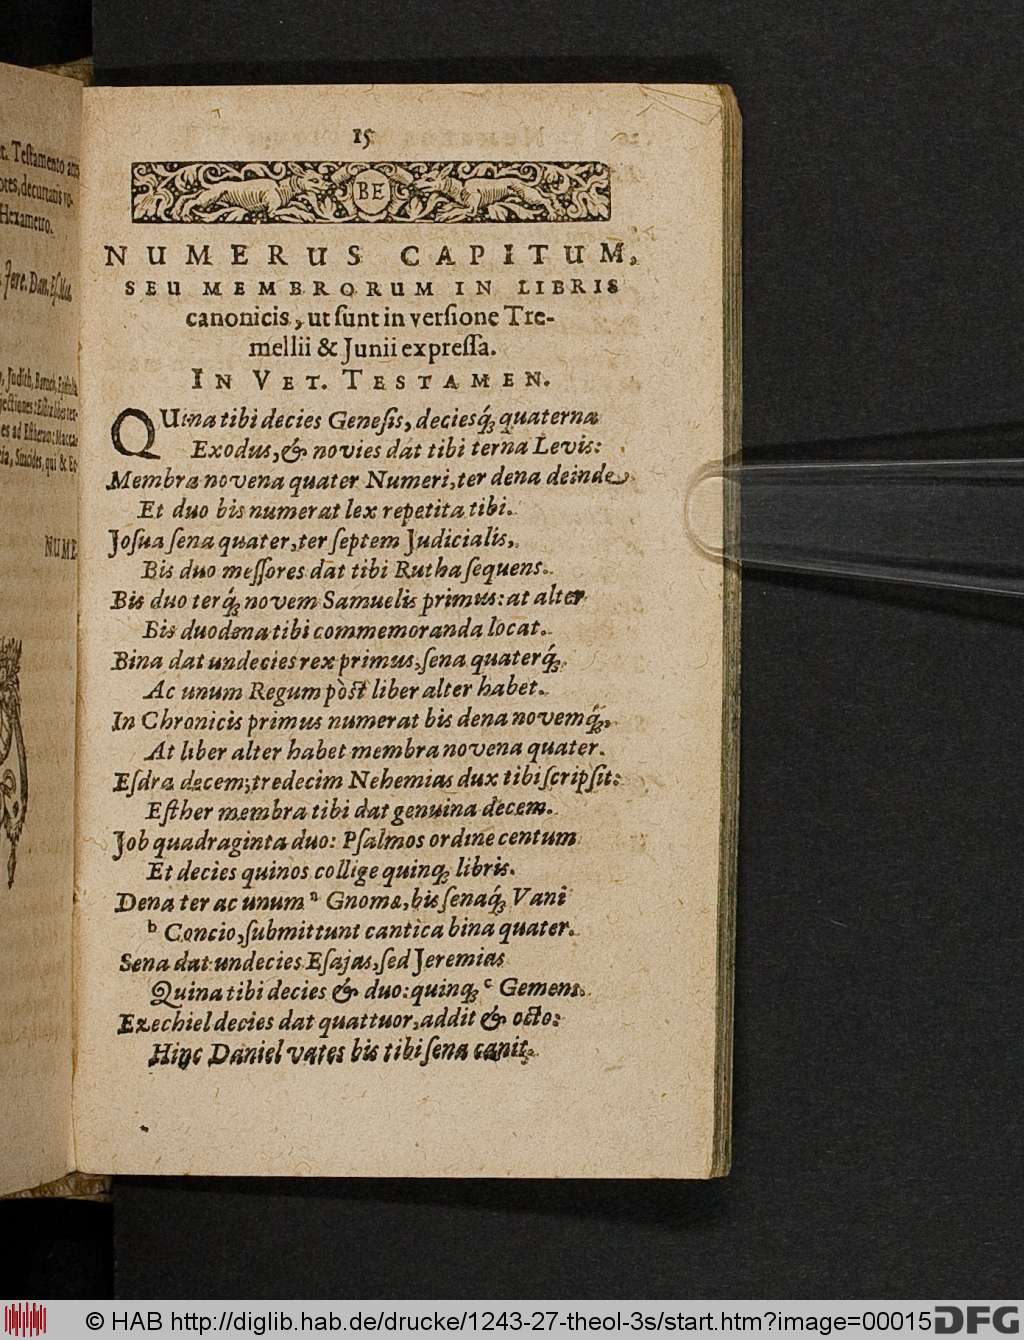 t. Testamento
decurtatis
Hexametro.
Jere. Dan.
Judith, Baruch,
NUME
15
BE
NUMERUS CAPITUM,
SEU MEMBRORUM IN LIBRIS
canonicis, ut ſunt in verſione Tre-
mellii & Junii expreſſa.
IN VET. TESTAMEN.
QUina tibi decies Geneſis, deciesq́; quaterna
Exodus, & novies dat tibi terna Levis:
Membra novena quater Numeri, ter dena deinde
Et duo bis numerat lex repetita tibi.
Joſua ſena quater, ter ſeptem Judicialis,
Bis duo meſſores dat tibi Rutha ſequens.
Bis duo terq́; novem Samuelis primus: at alter
Bis duodena tibi commemoranda locat.
Bina dat undecies rex primus, ſena quaterq́;
Ac unum Regum pòst liber alter habet.
In Chronicis primus numerat bis dena novemq́;,
At liber alter habet membra novena quater.
Eſdra decem; tredecim Nehemias dux tibi ſcripſit:
Eſther membra tibi dat genuina decem.
Job quadraginta duo: Pſalmos ordine centum
Et decies quinos collige quinq; libris.
Dena ter ac unum a Gnomæ, bis ſenaq́; Vani
b Concio, ſubmittunt cantica bina quater.
Sena dat undecies Eſajas, ſed Jeremias
Quina tibi decies & duo: quinq; c Gemens.
Ezechiel decies dat quattuor, addit & octo:
Hinc Daniel vates bis tibi ſena canit.
© HAB http://diglib.hab.de/drucke/1243-27-theol-3s/start.htm?image=00015
DFG